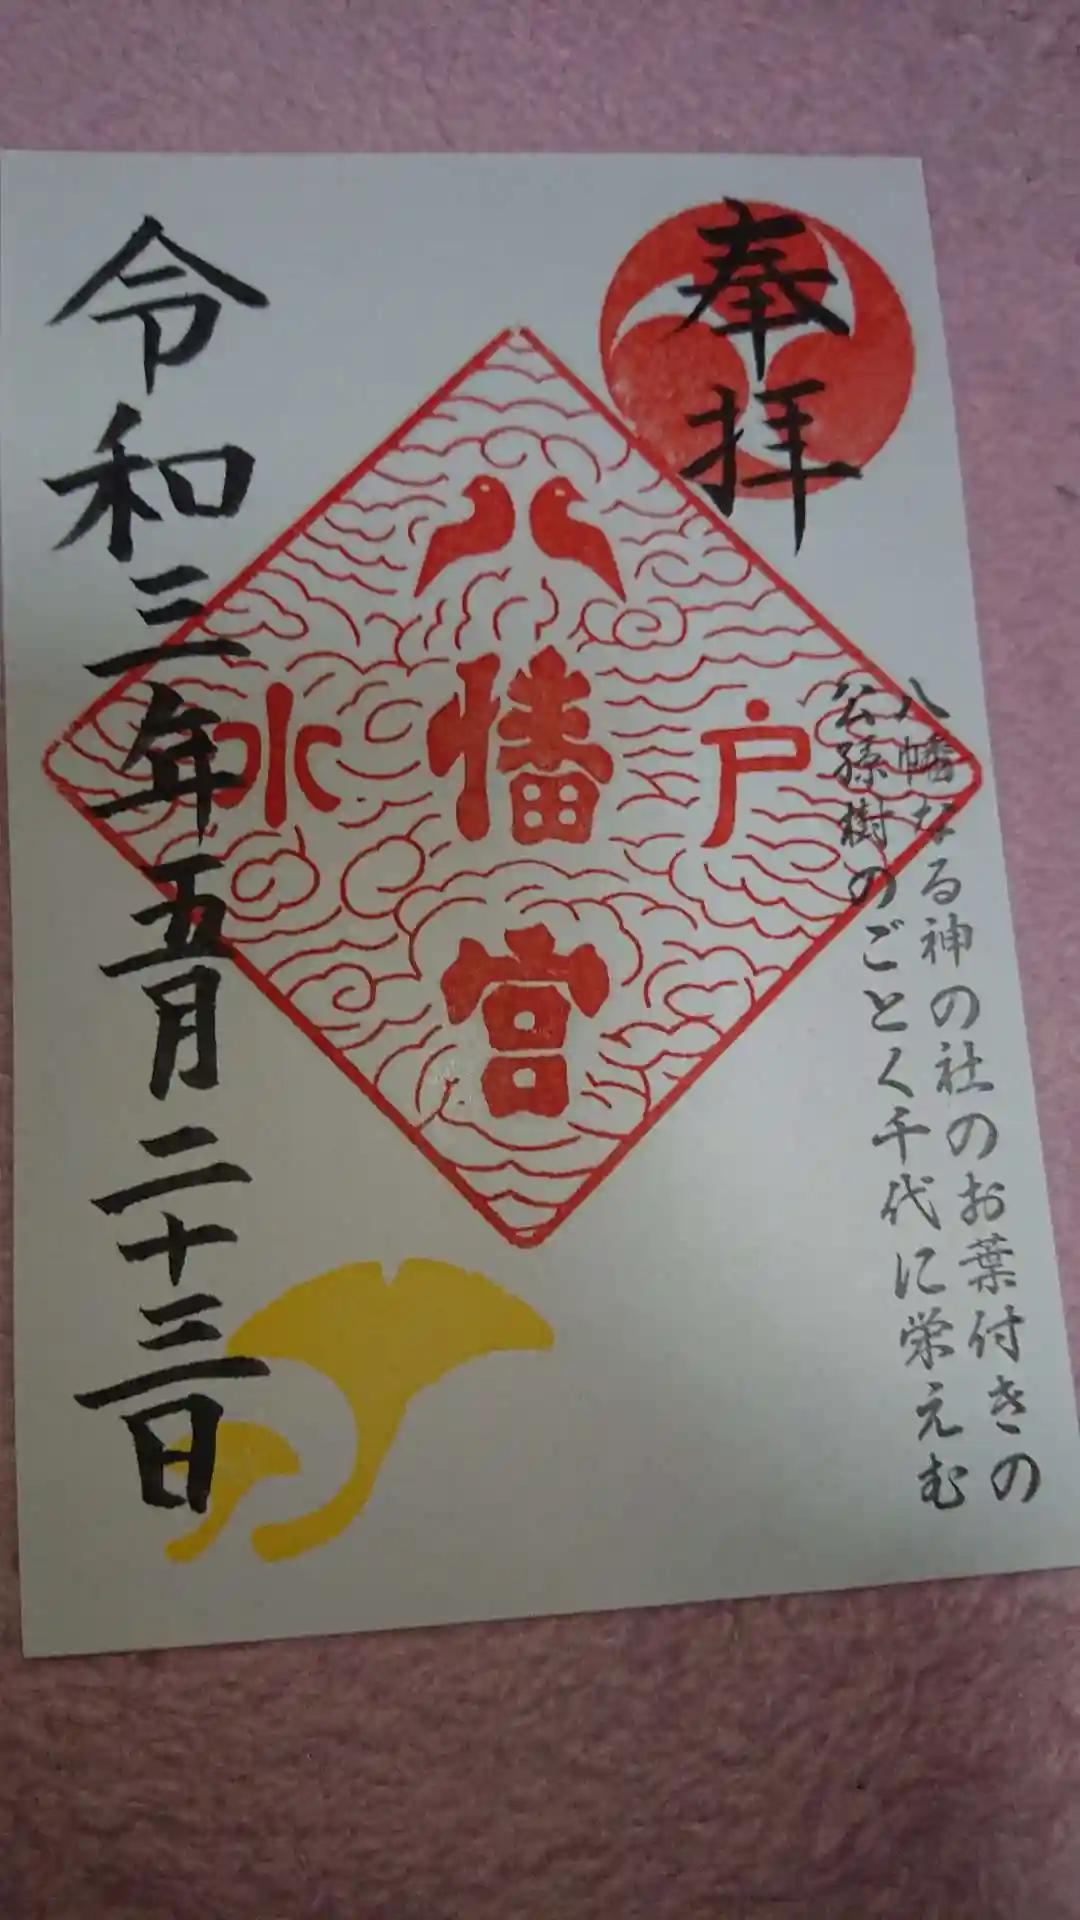 奉拝
八幡なる神の社のお葉付きの
公孫樹のごとく千代に栄えむ
水戸
八幡宮
令和三年五月二十三日